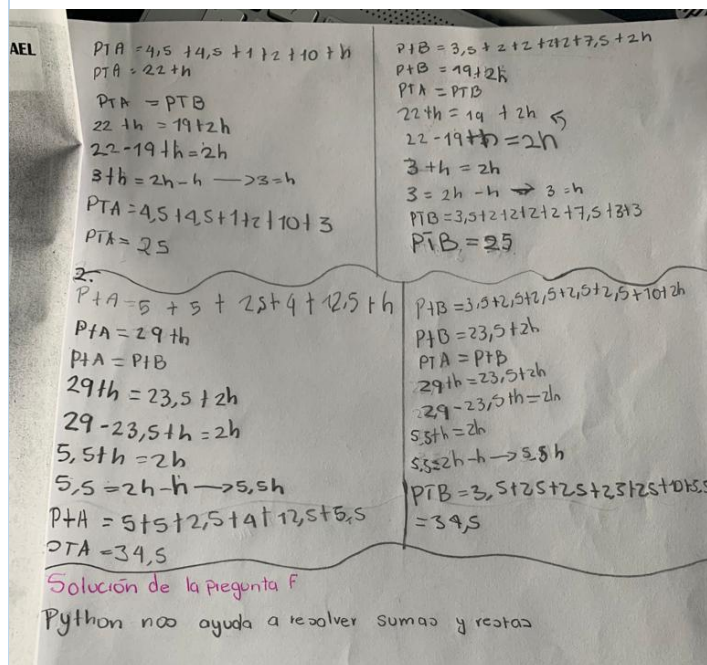 AEL
PTA = 4,5 + 4,5 + 1 + 2 + 10 + h
PTA = 22 + h
PTA = PTB
22 + h = 19 + 2h
22 - 19 + h = 2h
3 + h = 2h - h —> 3 = h
PTA = 4,5 + 4,5 + 1 + 2 + 10 + 3
PTA = 25
P+B = 3,5 + 2 + 2 + 2 + 2 + 7,5 + 2h
P+B = 19 + 2h
PTA = PTB
22 + h = 19 + 2h
22 - 19 + h = 2h
3 + h = 2h
3 = 2h - h → 3 = h
PTB = 3,5 + 2 + 2 + 2 + 2 + 7,5 + 3 + 3
PTB = 25
2.
P+A = 5 + 5 + 2,5 + 4 + 12,5 + h
P+A = 29 + h
P+A = P+B
29 + h = 23,5 + 2h
29 - 23,5 + h = 2h
5,5 + h = 2h
5,5 = 2h - h —> 5,5h
P+A = 5 + 5 + 2,5 + 4 + 12,5 + 5,5
PTA = 34,5
P+B = 3,5 + 2,5 + 2,5 + 2,5 + 2,5 + 10 + 2h
P+B = 23,5 + 2h
PTA = P+B
29 + h = 23,5 + 2h
29 - 23,5 + h = 2h
5,5 + h = 2h
5,5 = 2h - h —> 5,5 h
PTB = 3,5 + 2,5 + 2,5 + 2,5 + 2,5 + 10 + 5,5
= 34,5
Solución de la pregunta F
Python nos ayuda a resolver sumas y restas